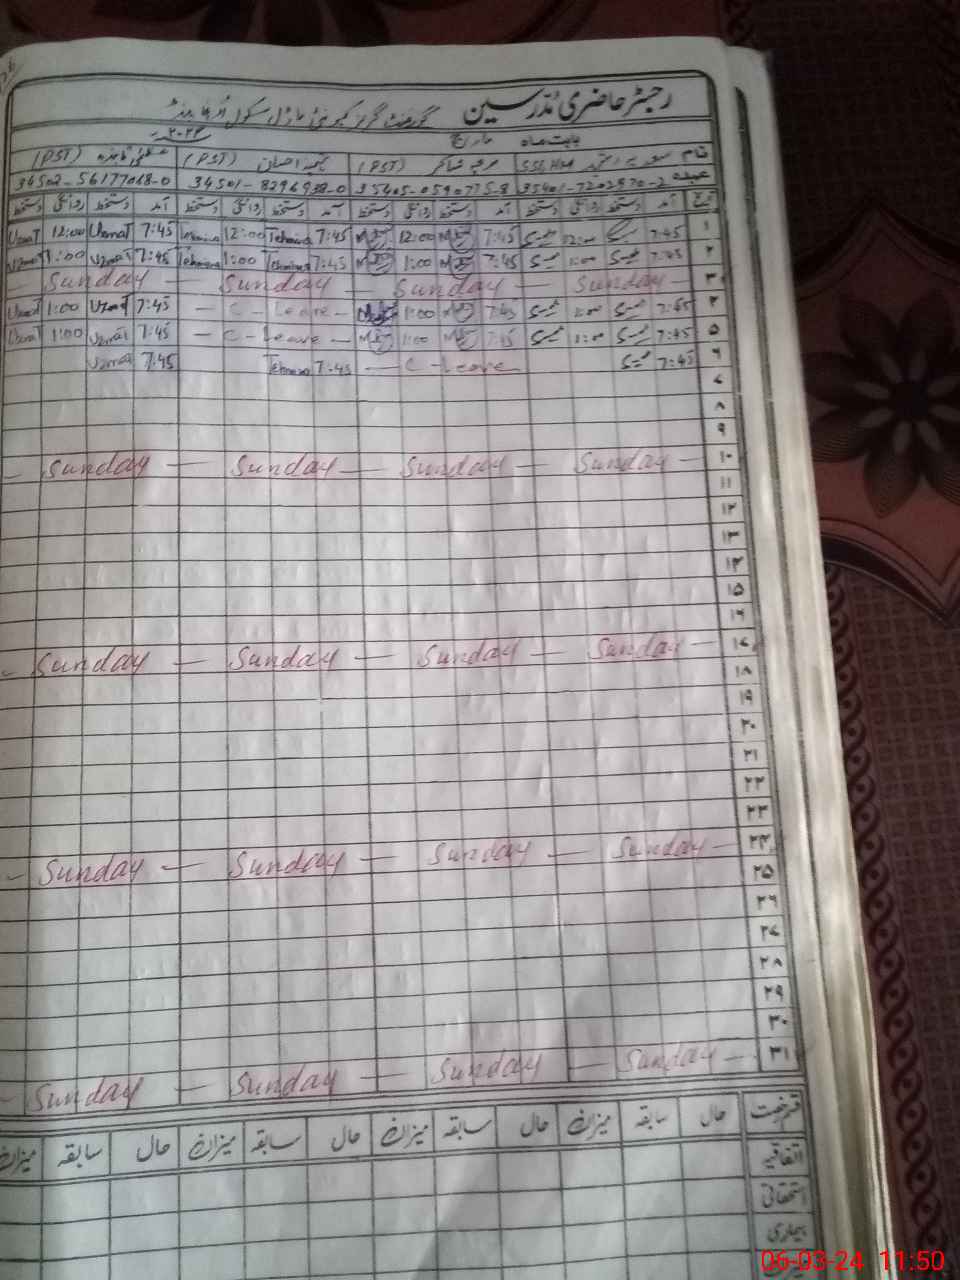 رجسٹر حاضری مدرسین
گورنمنٹ گرلز کمیونٹی ماڈل سکول
بابت ماہ مارچ ۲۰۲۴
نام (PST) (PST) (PST)
عہدہ 35401-7202570-2 35405-0590775-8 34501-8296938-0 34502-56177068-0
تاریخ آمد دستخط روانگی دستخط آمد دستخط روانگی دستخط آمد دستخط روانگی دستخط آمد دستخط روانگی دستخط
۱ 7:45 12:00 7:45 12:00 7:45 Tehmina 12:00 Tehmina 7:45 Uzmat 12:00 Uzmat
۲ 7:45 1:00 7:45 1:00 7:45 Tehmina 1:00 Tehmina 7:45 Uzmat 1:00 Uzmat
۳ Sunday — Sunday — Sunday — Sunday
۴ 7:45 1:00 7:45 1:00 — C - Leave — 7:45 Uzmat 1:00 Uzmat
۵ 7:45 1:00 7:45 1:00 — C - Leave — 7:45 Uzmat 1:00 Uzmat
۶ 7:45 — C - Leave 7:45 Tehmina 7:45 Uzmat
۷
۸
۹
۱۰ — Sunday — Sunday — Sunday — Sunday —
۱۱
۱۲
۱۳
۱۴
۱۵
۱۶
۱۷ — Sunday — Sunday — Sunday — Sunday —
۱۸
۱۹
۲۰
۲۱
۲۲
۲۳
۲۴ — Sunday — Sunday — Sunday — Sunday —
۲۵
۲۶
۲۷
۲۸
۲۹
۳۰
۳۱ — Sunday — Sunday — Sunday — Sunday —
قسم رخصت حال سابقہ میزان حال سابقہ میزان حال سابقہ میزان حال سابقہ میزان
اتفاقیہ
استحقاقی
بیماری
06-03-24 11:50